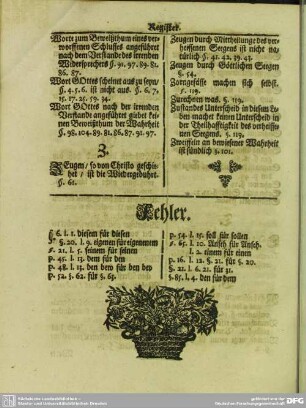 Register.
Worte zum Beweißthum eines ver-
worffenen Schlusses angeführt
nach dem Verstande des irrenden
Widersprechers §. 91. 97. 89. 83.
86. 87.
Wort GOttes scheinet aus zu seyn/
§. 4. 5. 6. ist nicht aus. §. 6. 7.
15. 17. 25. 59. 34.
Wort GOttes nach der irrenden
Verstande angeführet giebet kei-
nen Beweißthum der Wahrheit
§. 98. 104. 89. 81. 86. 87. 91. 97.
Z.
ZEugen/ so von Christo geschie-
het/ ist die Wiedergebuhrt.
§. 61.
Zeugen durch Mittheilunge des ver-
heissenen Seegens ist nicht na-
türlich §. 41. 42. 29. 43.
Zeugen durch Göttlichen Seegen
§. 54.
Zorngefässe machen sich selbst.
§. 119.
Zurechnen was. §. 119.
Zustandes Unterscheid in diesem Le-
ben machet keinen Unterscheid in
der Theilhafftigkeit des verheisse-
nen Seegens. §. 119.
Zweiffeln an bewiesener Wahrheit
ist sündlich §. 101.
Fehler.
§ 6. l. 1. diesem für diesen
§. 20. l. 9. eigenen für eigenem
s. 21. l. 5. seinem für seinen
p. 45. l. 13. dem für den
p. 48. l. 13. den dero für den der
p. 52. §. 62. für §. 63.
p. 54. l. 15. soll für sollen
s. 65. l. 10. Ansch für Ansch.
l. 2. einem für einen
p. 16. l. 12. §. 21. für §. 20.
§. 21. l. 6. 21. für 31.
§. 85. l. 4. den für dem